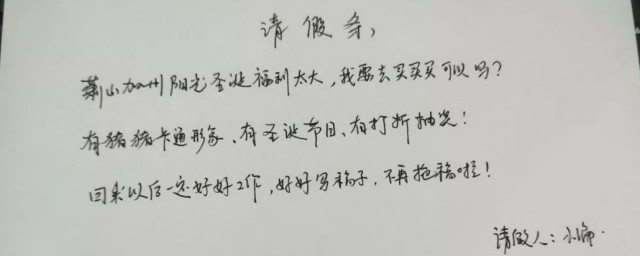 请假条,
萧山加州阳光圣诞福利太大,我要去买买买可以吗?
有猪猪卡通形象、有圣诞节目、有打折抽奖!
回来以后一定好好工作,好好写稿子,不再拖稿啦!
请假人:小编.